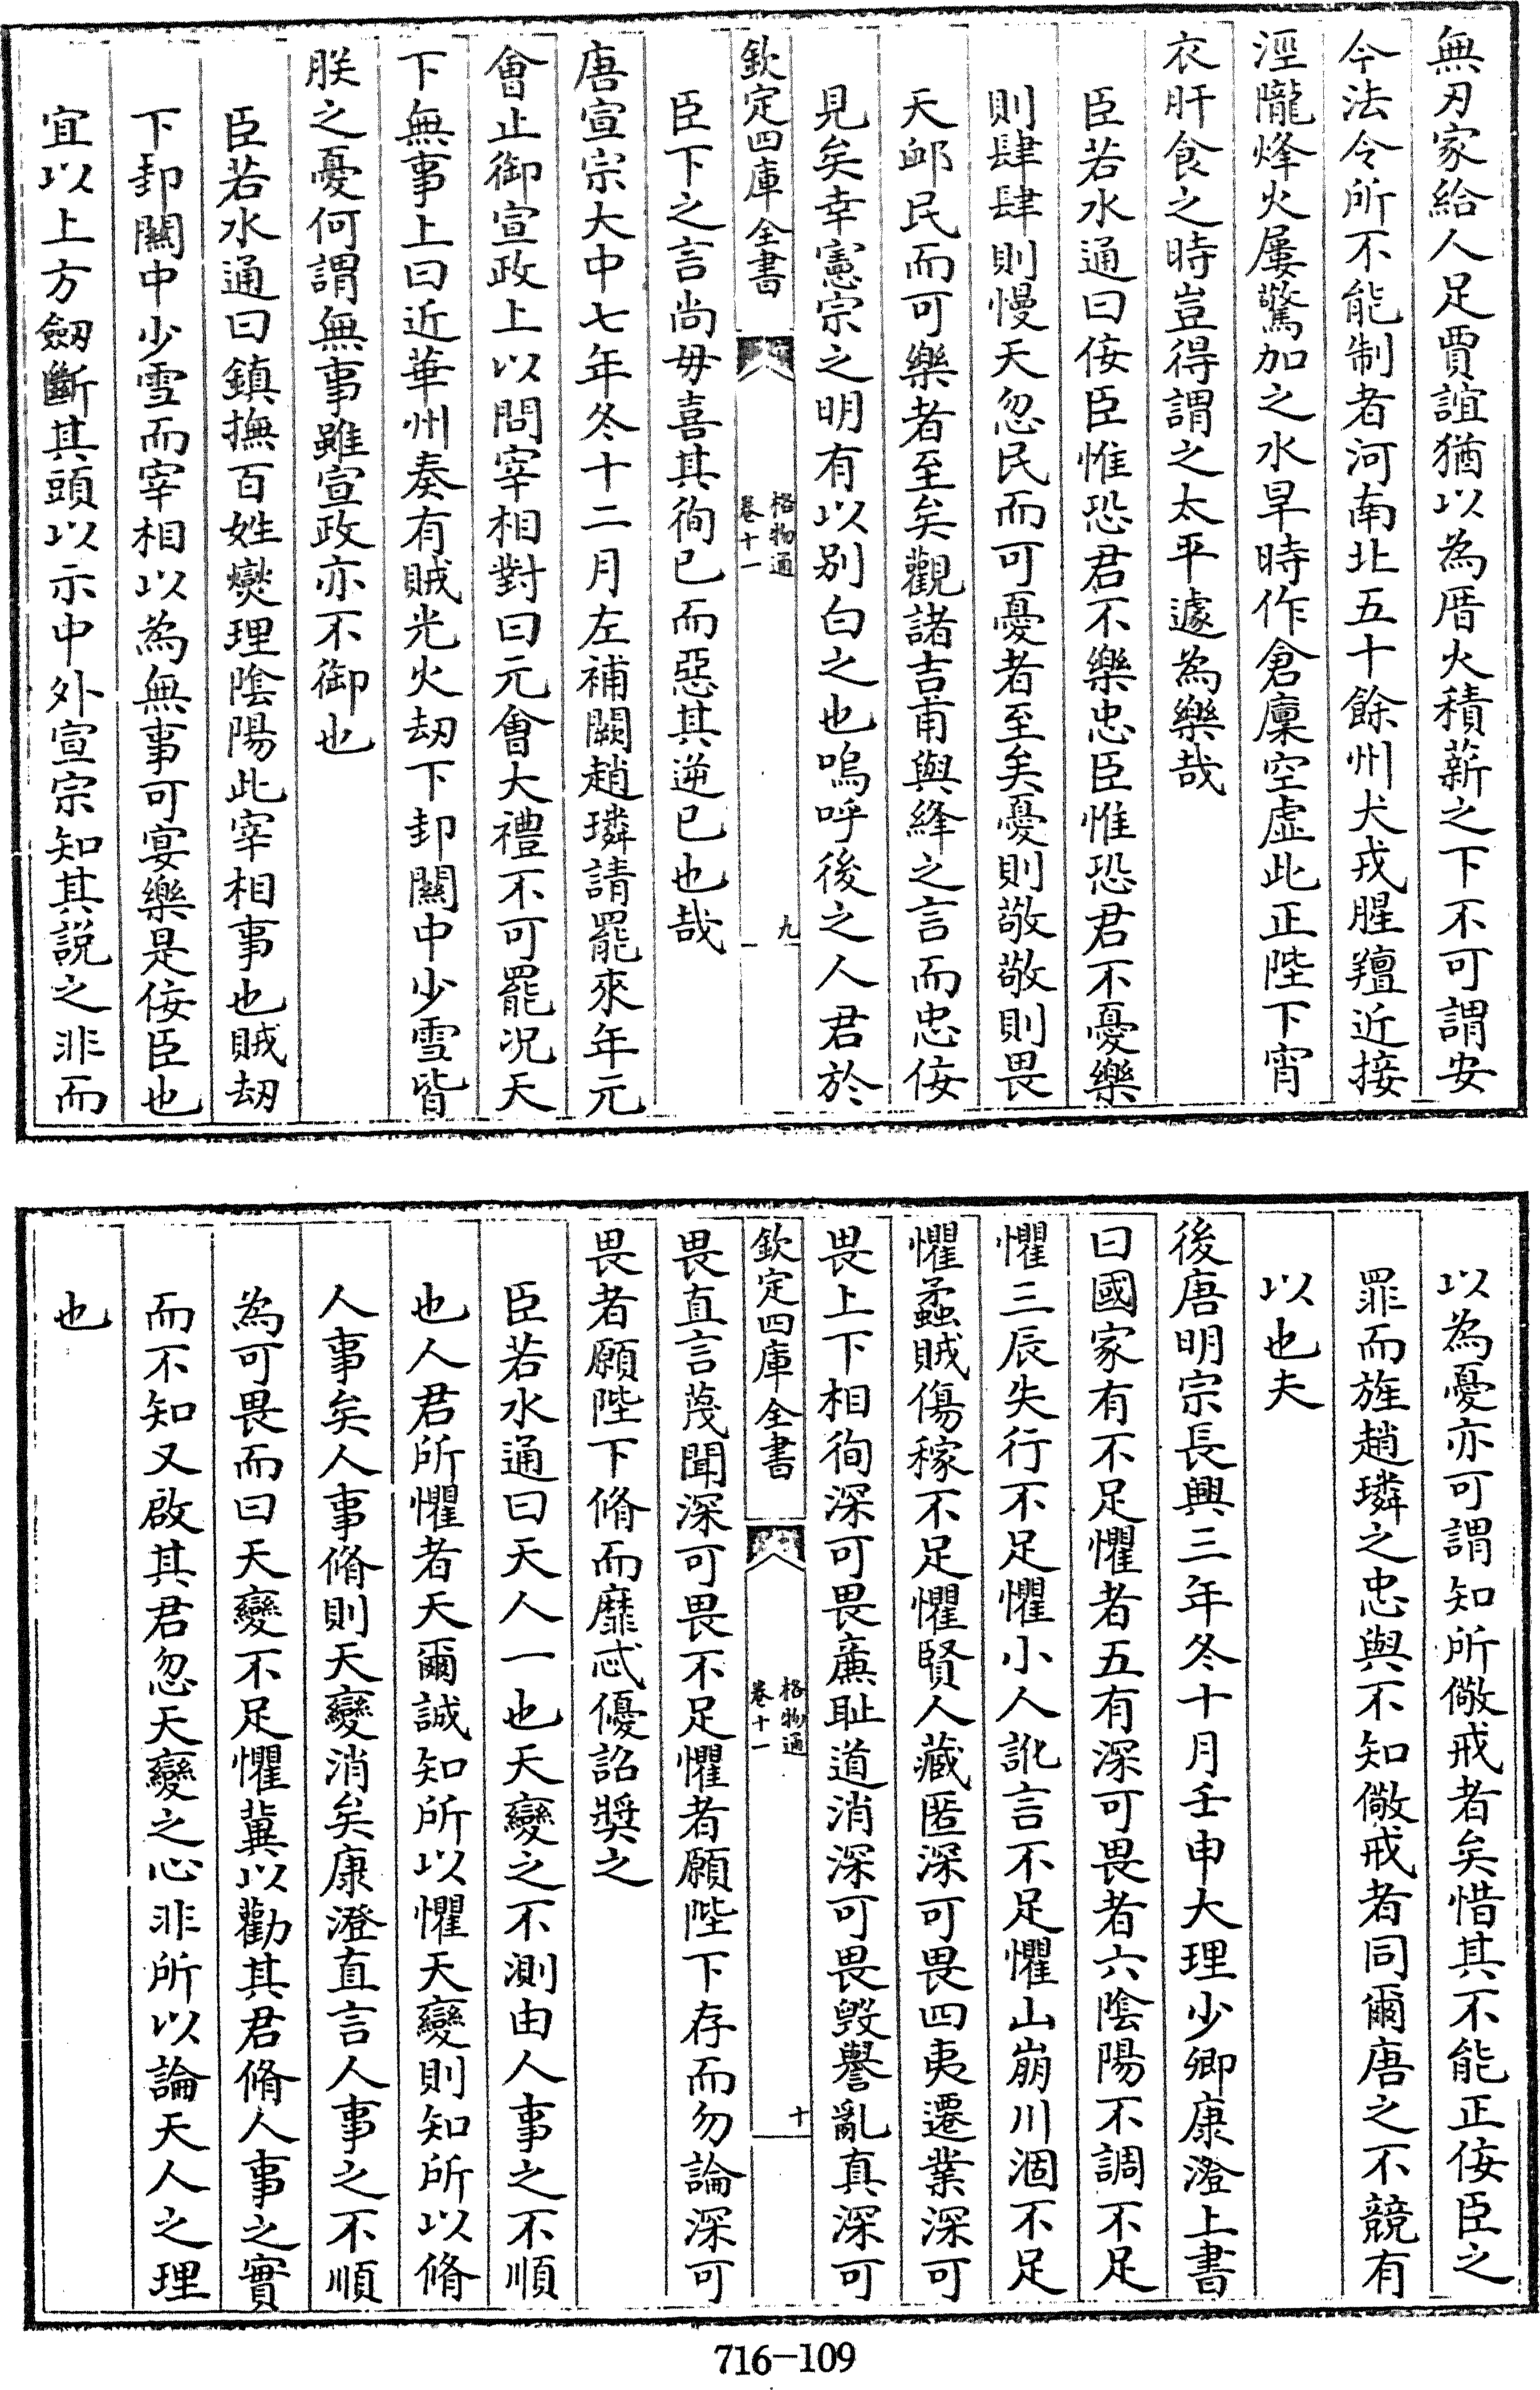 無刃家給人足賈誼猶以為厝火積薪之下不可謂安
今法令所不能制者河南北五十餘州犬戎腥羶近接
涇隴烽火屢驚加之水旱時作倉廩空虛此正陛下宵
衣旰食之時豈得謂之太平遽為樂哉
臣若水通曰佞臣惟恐君不樂忠臣惟恐君不憂樂
則肆肆則慢天忽民而可憂者至矣憂則敬敬則畏
天䘏民而可樂者至矣觀諸吉甫與絳之言而忠佞
見矣幸憲宗之明有以別白之也嗚呼後之人君於
欽定四庫全書
格物通
卷十一
九
臣下之言尚毋喜其徇已而惡其逆已也哉
唐宣宗大中七年冬十二月左補闕趙璘請罷來年元
會止御宣政上以問宰相對曰元會大禮不可罷况天
下無事上曰近華州奏有賊光火刼下邽關中少雪皆
朕之憂何謂無事雖宣政亦不御也
臣若水通曰鎮撫百姓爕理隂陽此宰相事也賊刼
下邽關中少雪而宰相以為無事可宴樂是佞臣也
宜以上方劔斷其頭以示中外宣宗知其説之非而
以為憂亦可謂知所儆戒者矣惜其不能正佞臣之
罪而旌趙璘之忠與不知儆戒者同爾唐之不競有
以也夫
後唐明宗長興三年冬十月壬申大理少卿康澄上書
曰國家有不足懼者五有深可畏者六隂陽不調不足
懼三辰失行不足懼小人訛言不足懼山崩川涸不足
懼蟊賊傷稼不足懼賢人藏匿深可畏四夷遷業深可
畏上下相徇深可畏亷恥道消深可畏毀譽亂真深可
欽定四庫全書
格物通
卷十一
十
畏直言蔑聞深可畏不足懼者願陛下存而勿論深可
畏者願陛下脩而靡忒優詔奬之
臣若水通曰天人一也天變之不測由人事之不順
也人君所懼者天爾誠知所以懼天變則知所以脩
人事矣人事脩則天變消矣康澄直言人事之不順
為可畏而曰天變不足懼冀以勸其君脩人事之實
而不知又啟其君忽天變之心非所以論天人之理
也
716-109